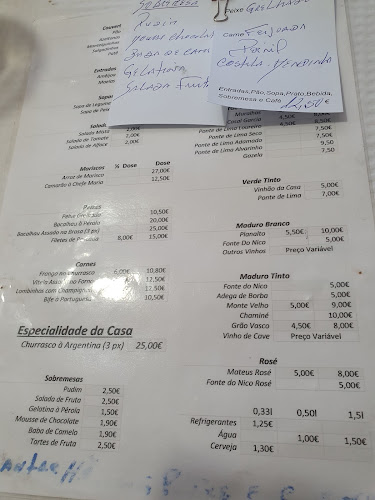 SOBREMESA
Pudim
Mousse chocolat
BABA DE CAME
Gelatina
Salada Fruta
Grelhad
Carne FEIJOADA
Pernil
Costela - Mendinha
Entradas, Pão, Sopa, Prato, Bebida,
Sobremesa e Café
12,50€
Couvert
Pão
Azeitonas
Entradas
Sopas
Sopa de Legume
Saladas
Salada Mista 2,00€
Salada de Tomate 2,00€
Salada de Alface 2,00€
Mariscos ½ Dose Dose
Arroz de Marisco 27,00€
Camarão à Chefe Maria 12,50€
Peixes
10,50€
Bacalhau à Pérola 20,00€
Bacalhau Assado na Brasa (3 px) 25,00€
Filetes de Pescada 8,00€ 15,00€
Carnes
Frango no Churrasco 6,00€ 10,80€
Vitela Assada no Forno 12,50€
Lombinhos com Champignon 12,50€
Bife à Portuguesa 10,50€
Especialidade da Casa
Churrasco à Argentina (3 px) 25,00€
Sobremesas
Pudim 2,50€
Salada de Fruta 2,50€
Gelatina à Pérola 1,50€
Mousse de Chocolate 1,90€
Baba de Camelo 1,90€
Tartes de Fruta 2,50€
Muralhas
Casal Garcia 4,50€ 8,50€
Ponte de Lima Seco 7,50€
Ponte de Lima Loureiro 7,50€
Ponte de Lima Adamado 9,50
Ponte de Lima Alvarinho 7,50
Gazela
Verde Tinto
Vinhão da Casa 5,00€
Ponte de Lima 7,00€
Maduro Branco
Planalto 5,50€ 10,00€
Fonte Do Nico 5,00€
Outros Vinhos Preço Variável
Maduro Tinto
Fonte do Nico 5,00€
Adega de Borba 5,00€
Monte Velho 5,00€ 9,00€
Chaminé 10,00€
Grão Vasco 4,50€ 8,00€
Vinho de Cave Preço Variável
Rosé
Mateus Rosé 5,00€ 8,00€
Fonte do Nico Rosé 5,00€
0,33l 0,50l 1,5l
Refrigerantes 1,25€
Água 1,00€ 1,50€
Cerveja 1,30€